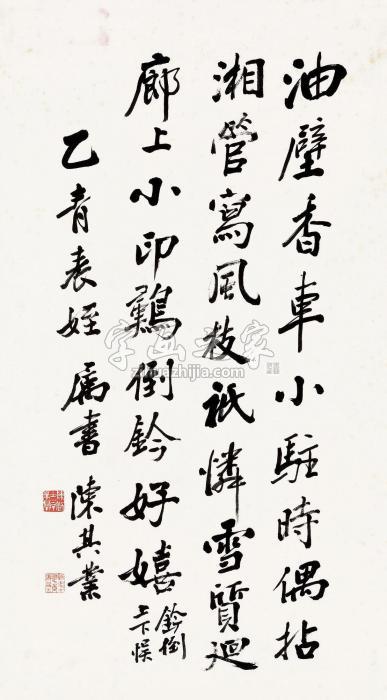 油壁香車小駐時偶拈
湘管寫風枝祇憐雪質迴
廊上小印倒鈐好嬉
鈐倒
上下悞
乙青表姪屬書 陳其業
字画之家
zihuazhijia.com